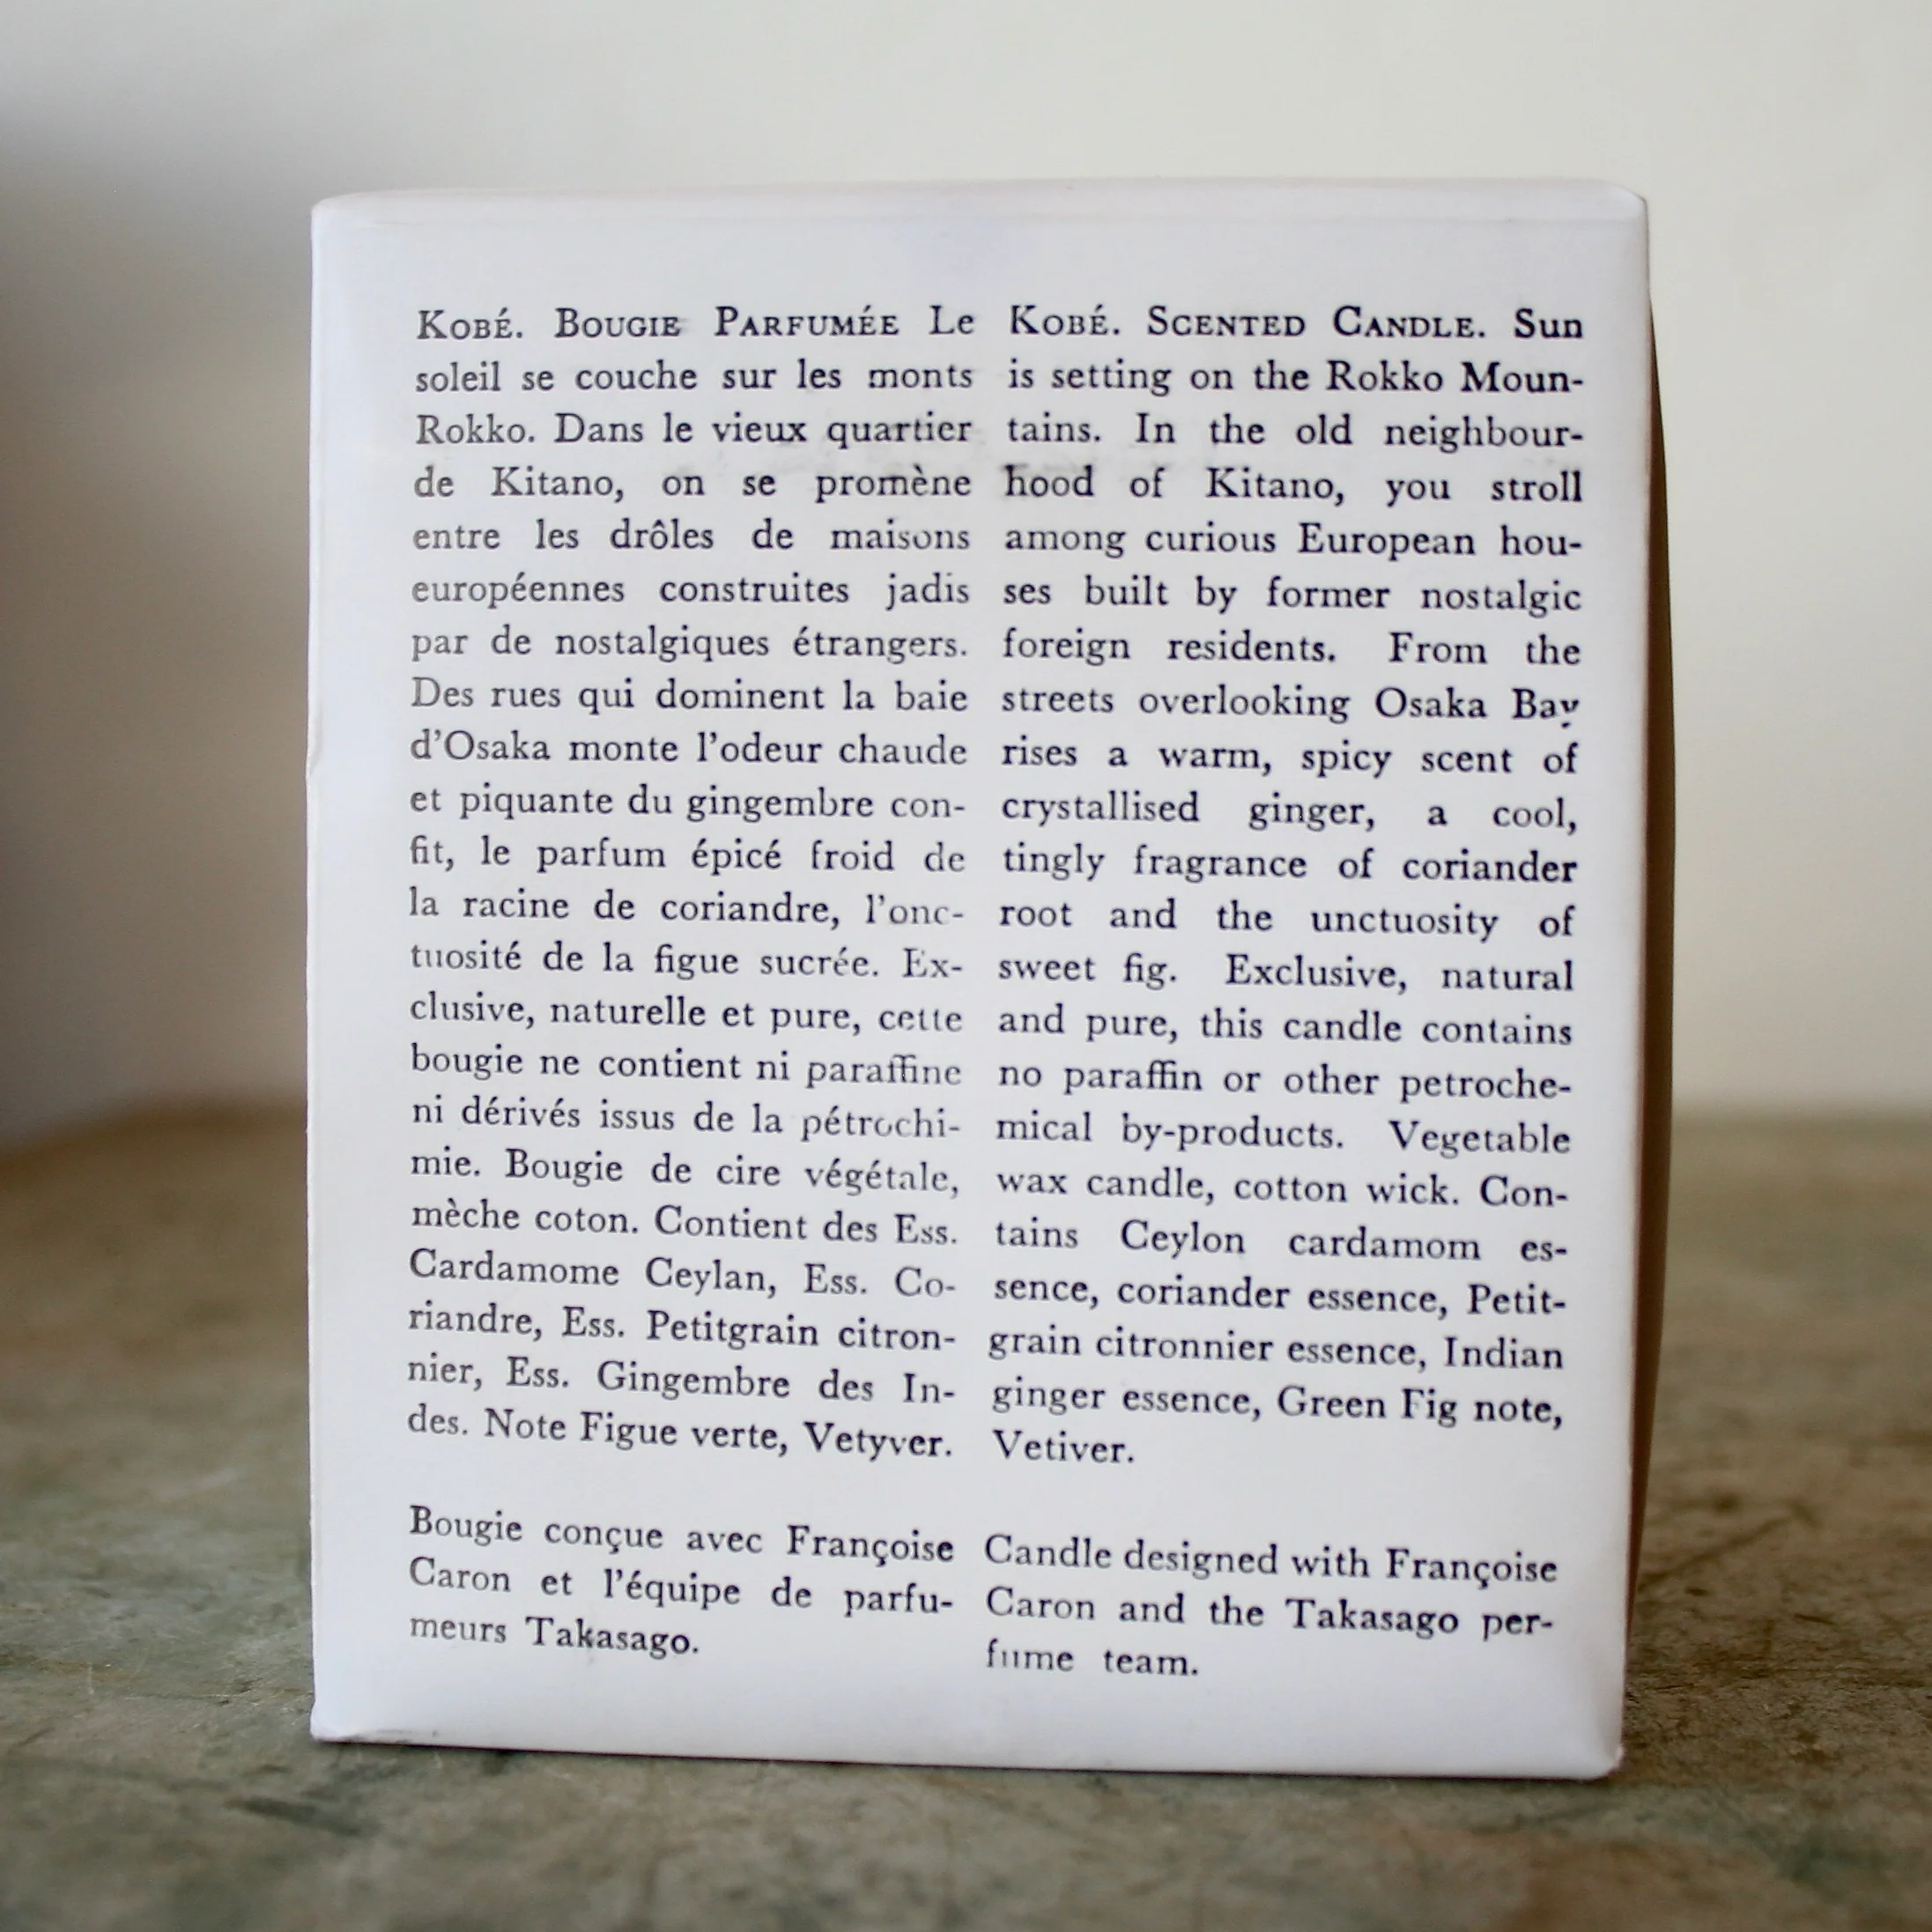 KOBÉ. BOUGIE PARFUMÉE Le
soleil se couche sur les monts
Rokko. Dans le vieux quartier
de Kitano, on se promène
entre les drôles de maisons
européennes construites jadis
par de nostalgiques étrangers.
Des rues qui dominent la baie
d'Osaka monte l'odeur chaude
et piquante du gingembre con-
fit, le parfum épicé froid de
la racine de coriandre, l'onc-
tuosité de la figue sucrée. Ex-
clusive, naturelle et pure, cette
bougie ne contient ni paraffine
ni dérivés issus de la pétrochi-
mie. Bougie de cire végétale,
mèche coton. Contient des Ess.
Cardamome Ceylan, Ess. Co-
riandre, Ess. Petitgrain citron-
nier, Ess. Gingembre des In-
des. Note Figue verte, Vetyver.
Bougie conçue avec Françoise
Caron et l'équipe de parfu-
meurs Takasago.
KOBÉ. SCENTED CANDLE. Sun
is setting on the Rokko Moun-
tains. In the old neighbour-
hood of Kitano, you stroll
among curious European hou-
ses built by former nostalgic
foreign residents. From the
streets overlooking Osaka Bay
rises a warm, spicy scent of
crystallised ginger, a cool,
tingly fragrance of coriander
root and the unctuosity of
sweet fig. Exclusive, natural
and pure, this candle contains
no paraffin or other petroche-
mical by-products. Vegetable
wax candle, cotton wick. Con-
tains Ceylon cardamom es-
sence, coriander essence, Petit-
grain citronnier essence, Indian
ginger essence, Green Fig note,
Vetiver.
Candle designed with Françoise
Caron and the Takasago per-
fume team.